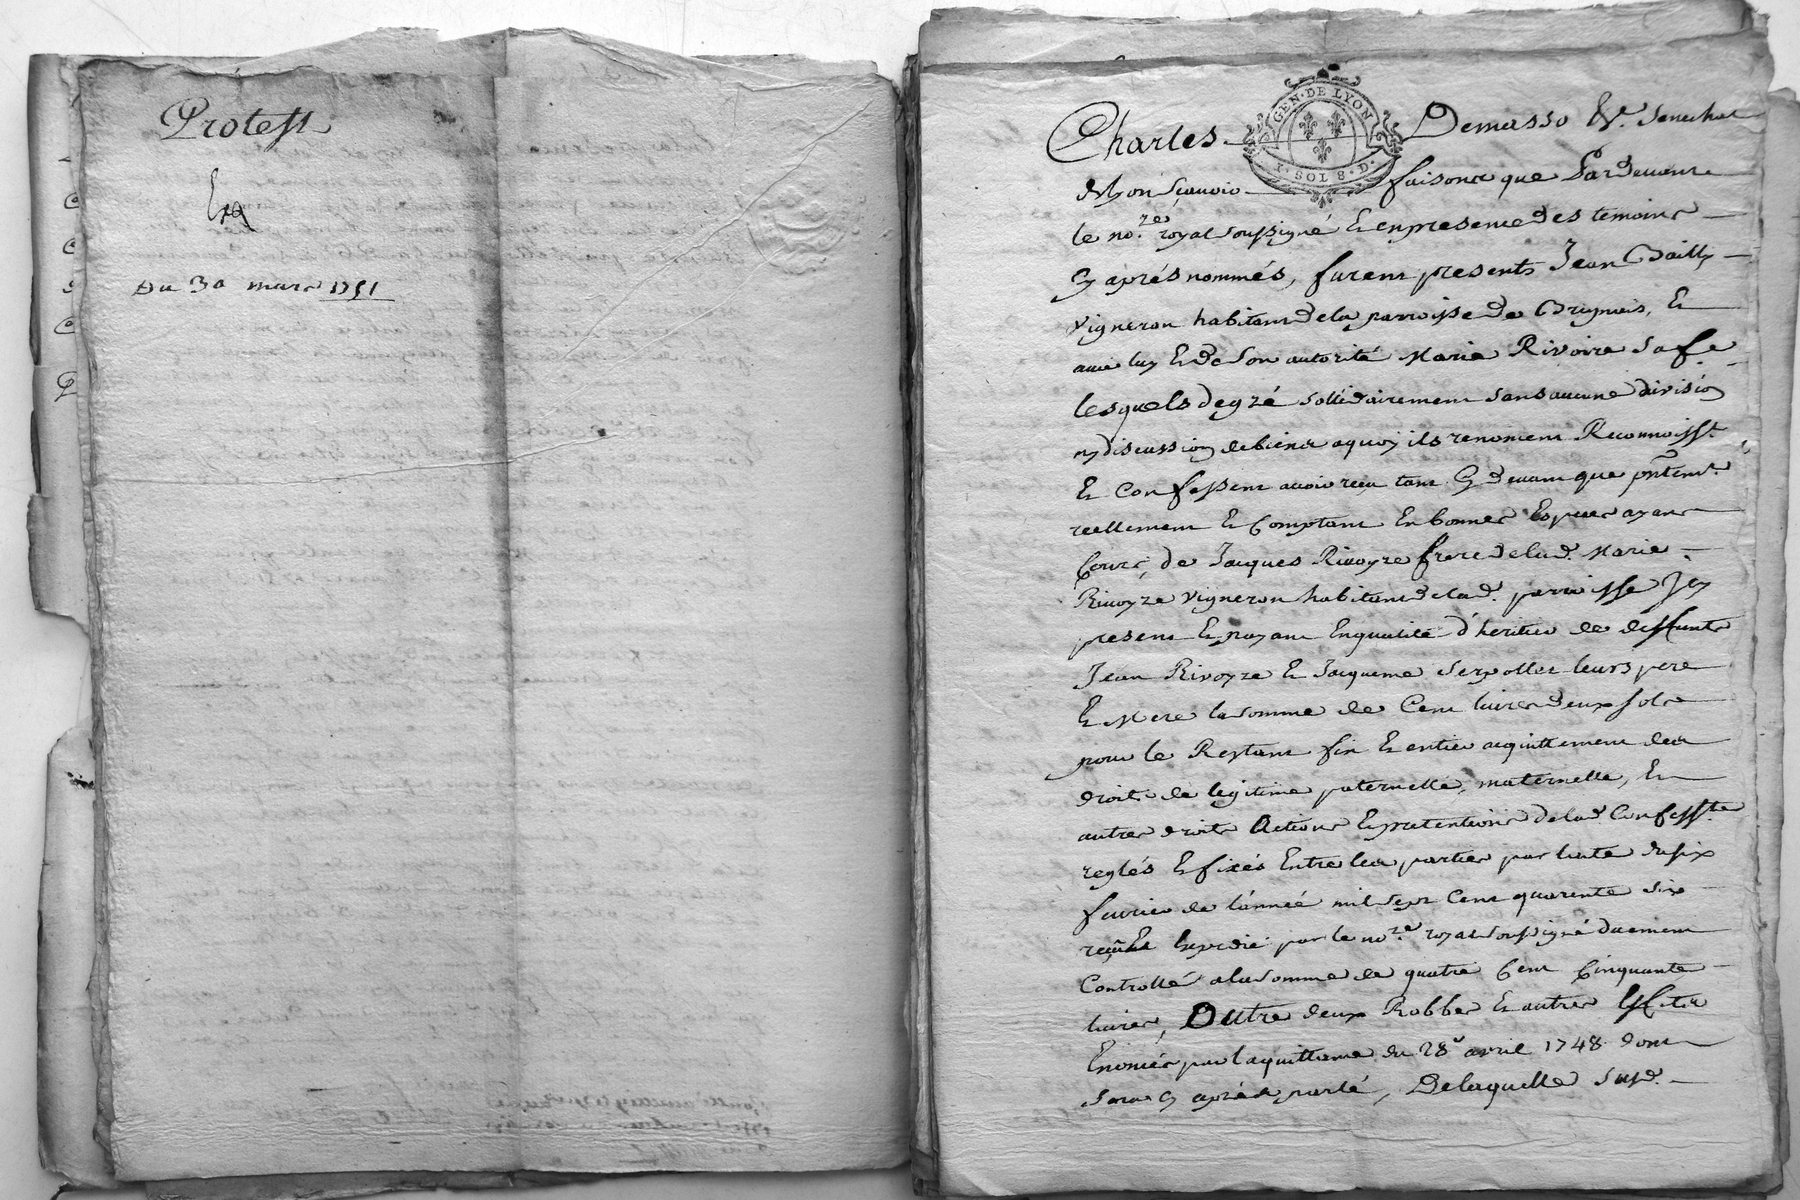 Protest
Du 30 mars 1751
GEN. DE LYON
1. SOL 8. D.
Charles Demasso Sr. Senechal
de Lyon sçavoir faisons que Pardevant
le no.re royal soussigné & en presence des temoins
Cy aprés nommés, furent presents Jean Bailly
vigneron habitant de la parroisse de Brignais, &
avec luy & de son autorité Marie Rivoire sa fe.
lesquels de gré sollidairement sans aucune division
ny discussion de biens a quoy ils renoncent Reconnoisst.
& Confessent avoir reçu tant Cy devant que pntemt.
reellement & Comptant En bonnes Especes ayant
Cours, de Jacques Rivoyre frere de lad. Marie
Rivoyre vigneron habitant de lad. parroisse Jcy
present & payant En qualité d'heritier de deffunts
Jean Rivoyre & Jacqueme Serpollet leurs pere
& Mere la somme de Cent livres deux sols
pour le Restant fin & entier acquittement des
droits de legitime paternelle, maternelle, &
autres droits Actions & pretentions de lad. Confesste
reglés & fixés Entre les parties par l'acte du six
fevrier de l'année mil sept Cent quarente six
reçu & Expedié par le no.re royal soussigné duement
Controllé a la somme de quatre Cent Cinquante
livres, Outre deux Robbes & autres Effets
Enoncés par la quittance du 28e avril 1748 dont
sera Cy aprés parlé, De laquelle susd.